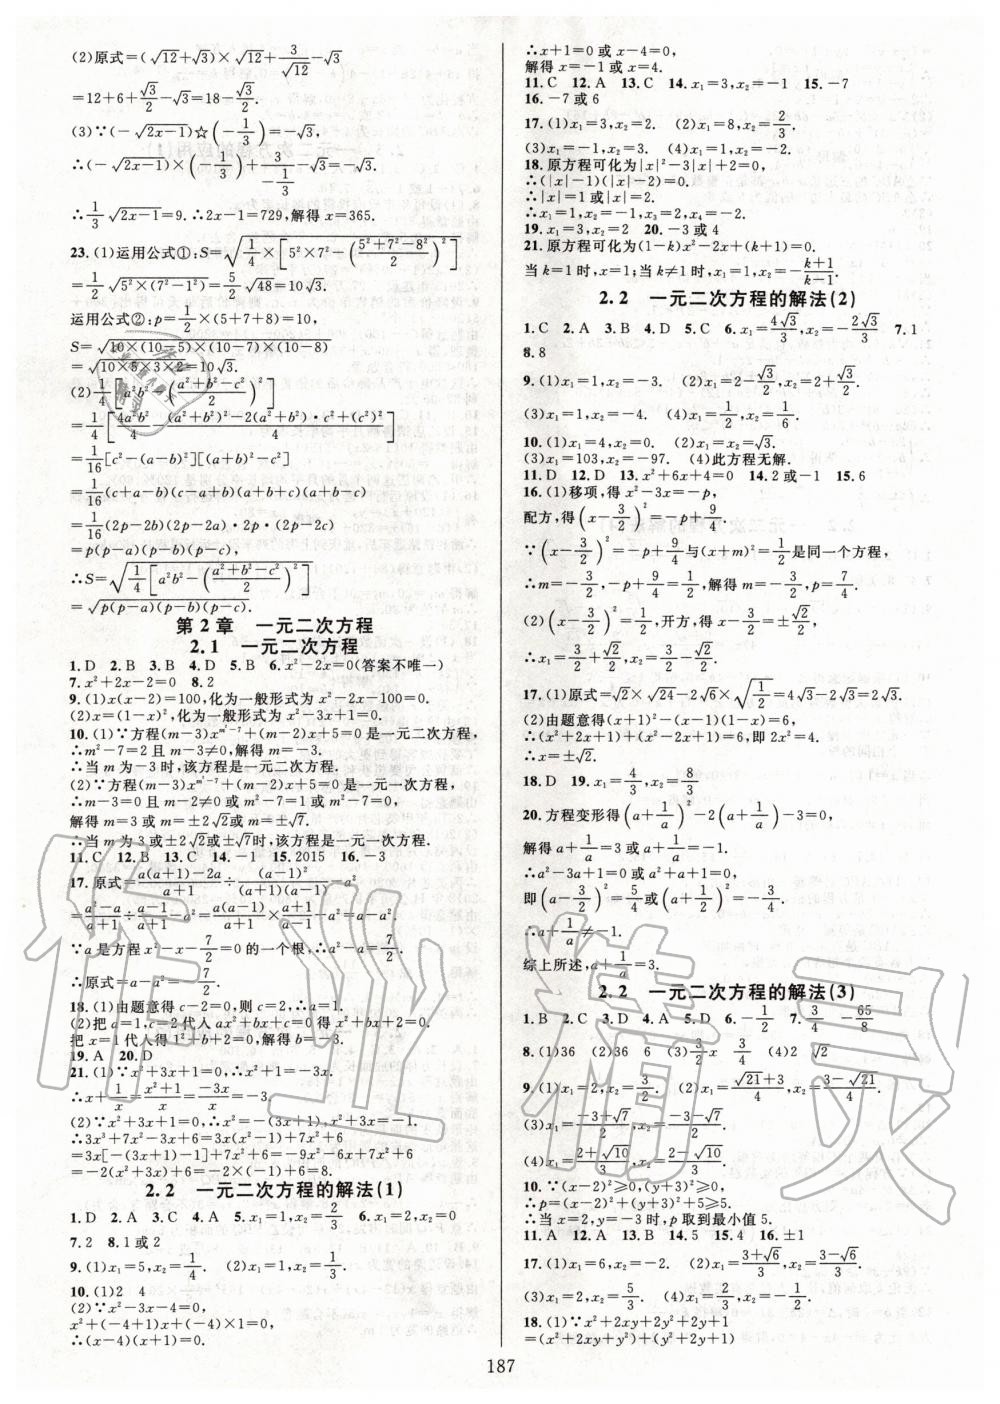 (2)原式=(√12+√3)×√12+3/√12-√3
=12+6+√3/2-√3=18-√3/2.
(3)∵(-√(2x-1))☆(-1/3)=-√3,
∴(-√(2x-1))×(-1/3)+(-√3)/(-1/3)=-√3.
∴1/3√(2x-1)=9. ∴2x-1=729,解得x=365.
23.(1)运用公式①:S=√(1/4×[5²×7²-((5²+7²-8²)/2)²])
=5/2√(7²-1²)=5/2√48=10√3.
运用公式②:p=1/2×(5+7+8)=10.
S=√(10×(10-5)×(10-7)×(10-8))
=√(10×5×3×2)=10√3.
(2)1/4[a²b²-((a²+b²-c²)/2)²]
=1/4[4a²b²/4-((a²+b²)²-2(a²+b²)·c²+(c²)²)/4]
=1/16[c²-(a-b)²][(a+b)²-c²]
=1/16(c+a-b)(c-a+b)(a+b+c)(a+b-c)
=1/16(2p-2b)(2p-2a)·2p·(2p-2c)
=p(p-a)(p-b)(p-c),
∴S=√(1/4[a²b²-((a²+b²-c²)/2)²])
=√(p(p-a)(p-b)(p-c)).
第2章 一元二次方程
2.1 一元二次方程
1.D 2.B 3.B 4.D 5.B 6.x²-2x=0(答案不唯一)
7.x²+2x-2=0 8.2
9.(1)x(x-2)=100,化为一般形式为x²-2x-100=0.
(2)x=(1-x)²,化为一般形式为x²-3x+1=0.
10.(1)∵方程(m-3)x^(m²-7)+(m-2)x+5=0是一元二次方程,
∴m²-7=2且m-3≠0,解得m=-3.
∴当m为-3时,该方程是一元二次方程.
(2)∵方程(m-3)x^(m²-7)+(m-2)x+5=0是一元一次方程,
∴m-3=0且m-2≠0或m²-7=1或m²-7=0,
解得m=3或m=±2√2或m=±√7.
∴当m为3或±2√2或±√7时,该方程是一元一次方程.
11.C 12.B 13.C 14.-1 15.2015 16.-3
17.原式=(a(a+1)-2a)/(a+1)÷(a-1)²/(a²-1)-a²
=(a²-a)/(a+1)÷(a-1)/(a+1)-a²=a(a-1)/(a+1)×(a+1)/(a-1)-a²=a-a².
∵a是方程x²-x-7/2=0的一个根,∴a²-a=7/2.
∴原式=a-a²=-7/2.
18.(1)由题意得c-2=0,则c=2,∴a=1.
(2)把a=1,c=2代入ax²+bx+c=0得x²+bx+2=0,
把x=1代入得1²+b+2=0,解得b=-3.
19.A 20.D
21.(1)∵x²+3x+1=0,∴x²+1=-3x.
∴x+1/x=(x²+1)/x=-3x/x=-3.
(2)∵x²+3x+1=0,∴x²=-(3x+1),x²+3x=-1.
∴3x³+7x²-3x+6=3x(x²-1)+7x²+6
=3x[-(3x+1)-1]+7x²+6=-9x²-6x+7x²+6
=-2x²-6x+6=-2(x²+3x)+6=8.
2.2 一元二次方程的解法(1)
1.D 2.A 3.C 4.A 5.x₁=1,x₂=2/3 6.x₁=2,x₂=0
7.2 8.1或2
9.(1)x₁=2,x₂=1/4. (2)x₁=4,x₂=1.
10.(1)2 4
(2)∵x²-3x-4=0,
x²+(-4+1)x+(-4)×1=0,
∴(x-4)(x+1)=0.
∴x+1=0或x-4=0,
解得x=-1或x=4.
11.C 12.A 13.C 14.x₁=3,x₂=-1 15.-7
16.-7或6
17.(1)x₁=3,x₂=2. (2)x₁=8,x₂=2/3.
(3)x₁=-1,x₂=3. (4)x₁=1,x₂=2.
18.原方程可化为|x|²-3|x|+2=0,
∴(|x|-1)(|x|-2)=0.
∴|x|=1或|x|=2.
∴x₁=1,x₂=-1,x₃=2,x₄=-2.
19.x₁=3,x₂=-2 20.-3或4
21.原方程可化为(1-k)x²-2x+(k+1)=0.
当k=1时,x=1;当k≠1时,x₁=1,x₂=-(k+1)/(k-1).
2.2 一元二次方程的解法(2)
1.C 2.A 3.B 4.D 5.C 6.x₁=4√3/3,x₂=-2√3/3 7.1
8.8
9.(1)x₁=1,x₂=-3. (2)x₁=2-√3/2,x₂=2+√3/2.
(3)x₁=1,x₂=-4. (4)x₁=1/2,x₂=-1/6.
10.(1)x₁=0,x₂=4. (2)x₁=x₂=√3.
(3)x₁=103,x₂=-97. (4)此方程无解.
11.D 12.D 13.x²+6x+4=0 14.2或-1 15.6
16.(1)移项,得x²-3x=-p,
配方,得(x-3/2)²=-p+9/4.
∵(x-3/2)²=-p+9/4与(x+m)²=1/2为同一个方程,
∴m=-3/2,-p+9/4=1/2,解得m=-3/2,p=7/4.
(2)∵(x-3/2)²=1/2,开方,得x-3/2=±√2/2,
∴x₁=3/2+√2/2,x₂=3/2-√2/2.
17.(1)原式=√2×√24-2√6×√(1/2)=4√3-2√3=2√3.
(2)由题意得(x+1)²-(x-1)(1-x)=6,
∴(x²+2x+1)+(x²-2x+1)=6,即2x²=4.
∴x=±√2.
18.D 19.x₁=4/3,x₂=8/3
20.方程变形得(a+1/a)²-2(a+1/a)-3=0,
解得a+1/a=3或a+1/a=-1.
∴a²-3a+1=0或a²+a+1=0.
即(a-3/2)²=5/4或(a+1/2)²=-3/4.
∴a+1/a≠-1.
综上所述,a+1/a=3.
2.2 一元二次方程的解法(3)
1.B 2.C 3.D 4.A 5.D 6.-1/2 7.3/4 -65/8
8.(1)36 (2)36 6 (3)3/2x 3/4 (4)2 √2
9.(1)x₁=2,x₂=3/2. (2)x₁=(√21+3)/4,x₂=(3-√21)/4.
(3)x₁=(-3+√7)/2,x₂=(-3-√7)/2.
(4)x₁=(2+√10)/2,x₂=(2-√10)/2.
10.∵(x-2)²≥0,(y+3)²≥0,
∴p=(x-2)²+(y+3)²+5≥5.
∴当x=2,y=-3时,p取到最小值5.
11.A 12.A 13.B 14.5 15.4 16.±1
17.(1)x₁=6,x₂=-2. (2)x₁=(3+√6)/3,x₂=(3-√6)/3.
(3)x₁=2,x₂=5/3. (4)x₁=8,x₂=2.
18.(1)x²+2xy+2y²+2y+1
=(x²+2xy+y²)+(y²+2y+1)
187
作业精灵